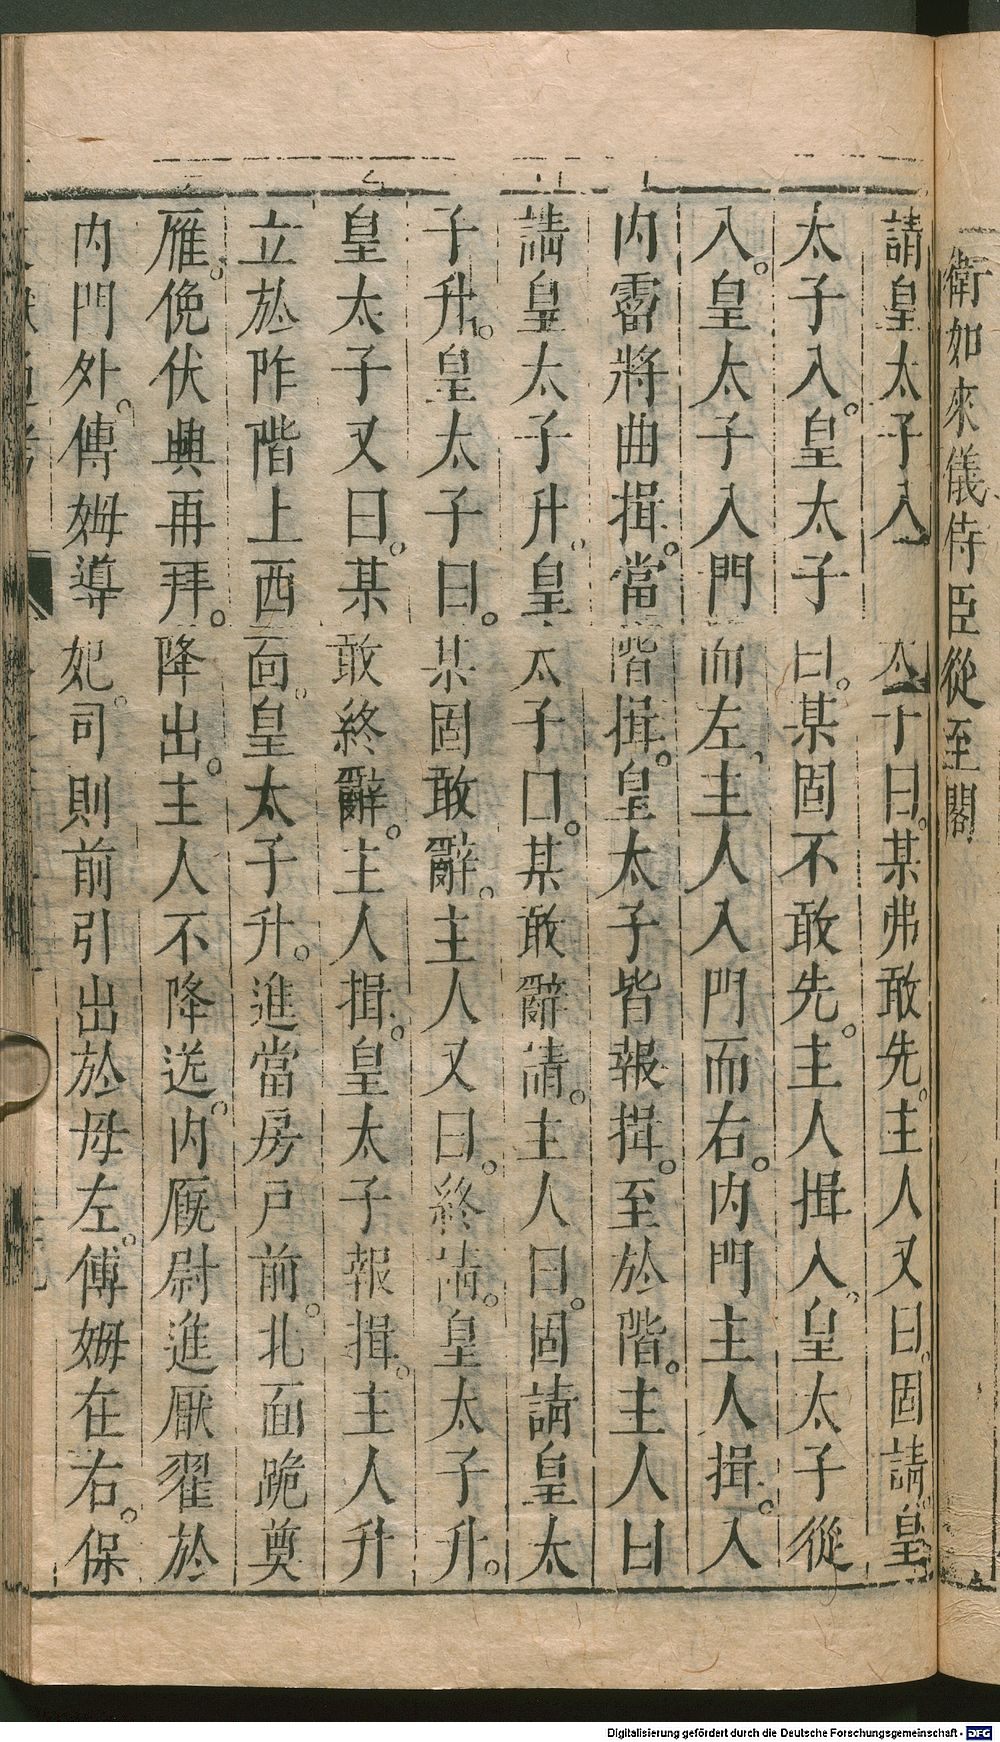 衛如來儀侍臣從至閣
請皇太子入太子曰。某弗敢先。主人又曰。固請。皇
太子入。皇太子曰。某固不敢先。主人揖入。皇太子從
入。皇太子入門而左。主人入門而右。內門主人揖。入
內霤將曲揖。當階揖。皇太子皆報揖。至於階。主人曰
請皇太子升。皇太子曰。某敢辭請。主人曰。固請皇太
子升。皇太子曰。某固敢辭。主人又曰。終請。皇太子升。
皇太子又曰。某敢終辭。主人揖。皇太子報揖。主人升
立於阼階上西面。皇太子升。進當房戶前。北面跪奠
雁。俛伏興再拜。降出。主人不降送。內廐尉進厭翟於
內門外。傅姆導妃。司則前引出於母左。傅姆在右。保
Digitalisierung gefördert durch die Deutsche Forschungsgemeinschaft - DFG